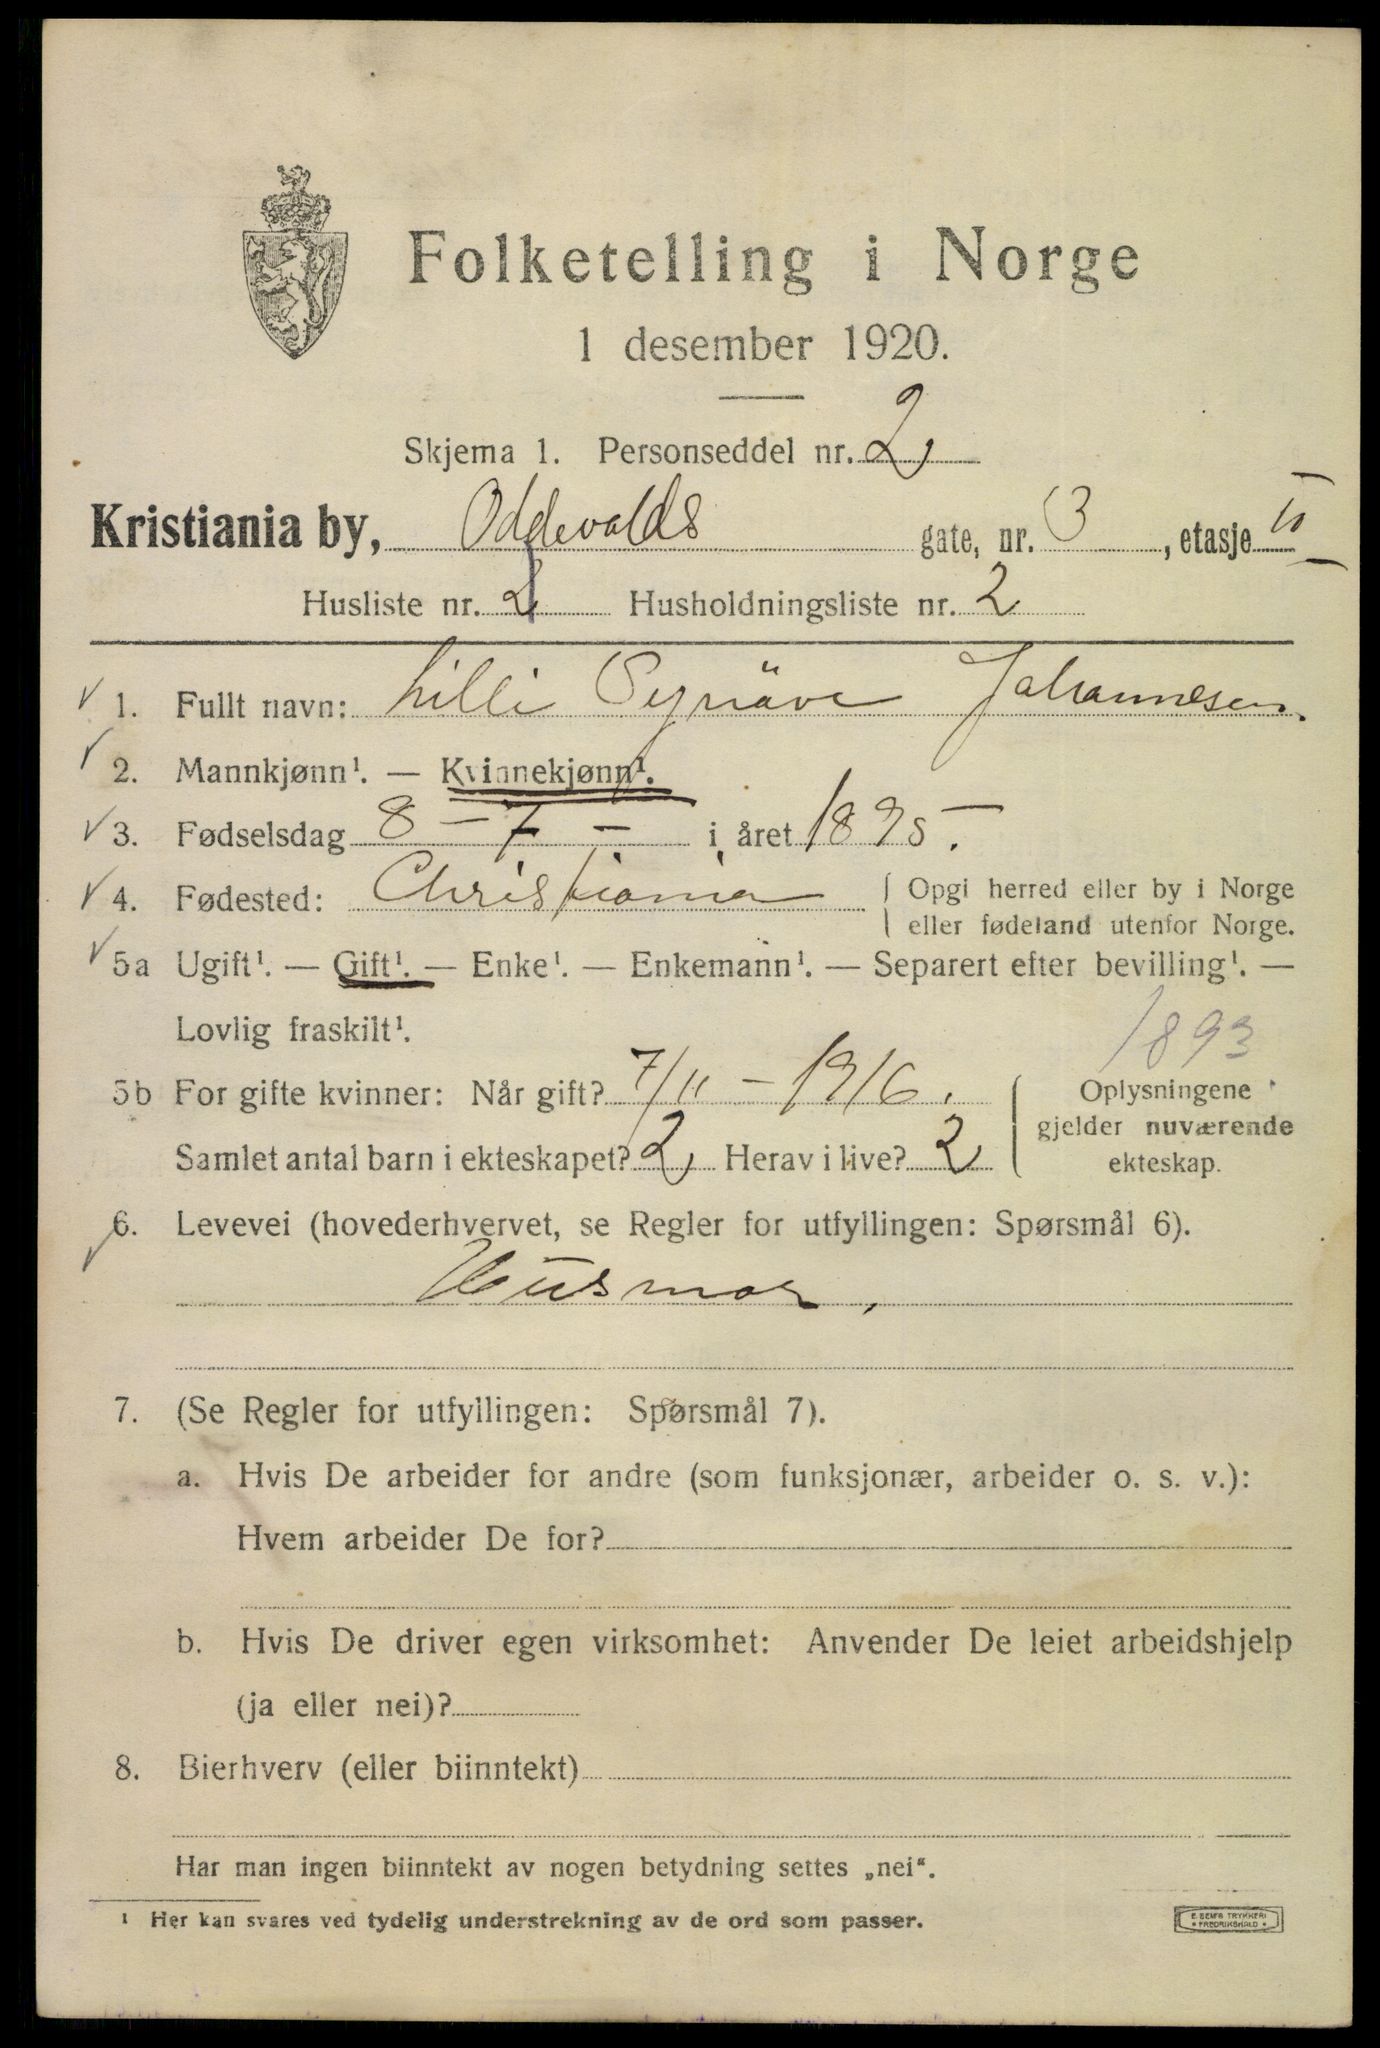 Folketelling i Norge
1 desember 1920.
Skjema 1. Personseddel nr. 2
Kristiania by, Oddevalds gate, nr. 3, etasje II
Husliste nr. 2 Husholdningsliste nr. 2
1. Fullt navn: Lilli Synöve Johannesen.
2. Mannkjønn¹. — Kvinnekjønn¹.
3. Fødselsdag 8 - 7 - i året 1895.
4. Fødested: Christiania Opgi herred eller by i Norge
eller fødeland utenfor Norge.
5a Ugift¹. — Gift¹. — Enke¹. — Enkemann¹. — Separert efter bevilling¹. —
Lovlig fraskilt¹.
1893
5b For gifte kvinner: Når gift? 7/11 - 1916. Oplysningene
gjelder nuværende
Samlet antal barn i ekteskapet? 2 Herav i live? 2 ekteskap.
6. Levevei (hovederhvervet, se Regler for utfyllingen: Spørsmål 6).
Husmor.
7. (Se Regler for utfyllingen: Spørsmål 7).
a. Hvis De arbeider for andre (som funksjonær, arbeider o. s. v.):
Hvem arbeider De for?
b. Hvis De driver egen virksomhet: Anvender De leiet arbeidshjelp
(ja eller nei)?
8. Bierhverv (eller biinntekt)
Har man ingen biinntekt av nogen betydning settes „nei“.
¹ Her kan svares ved tydelig understrekning av de ord som passer.
E. SEMS TRYKKERI
* FREDRIKSHALD *